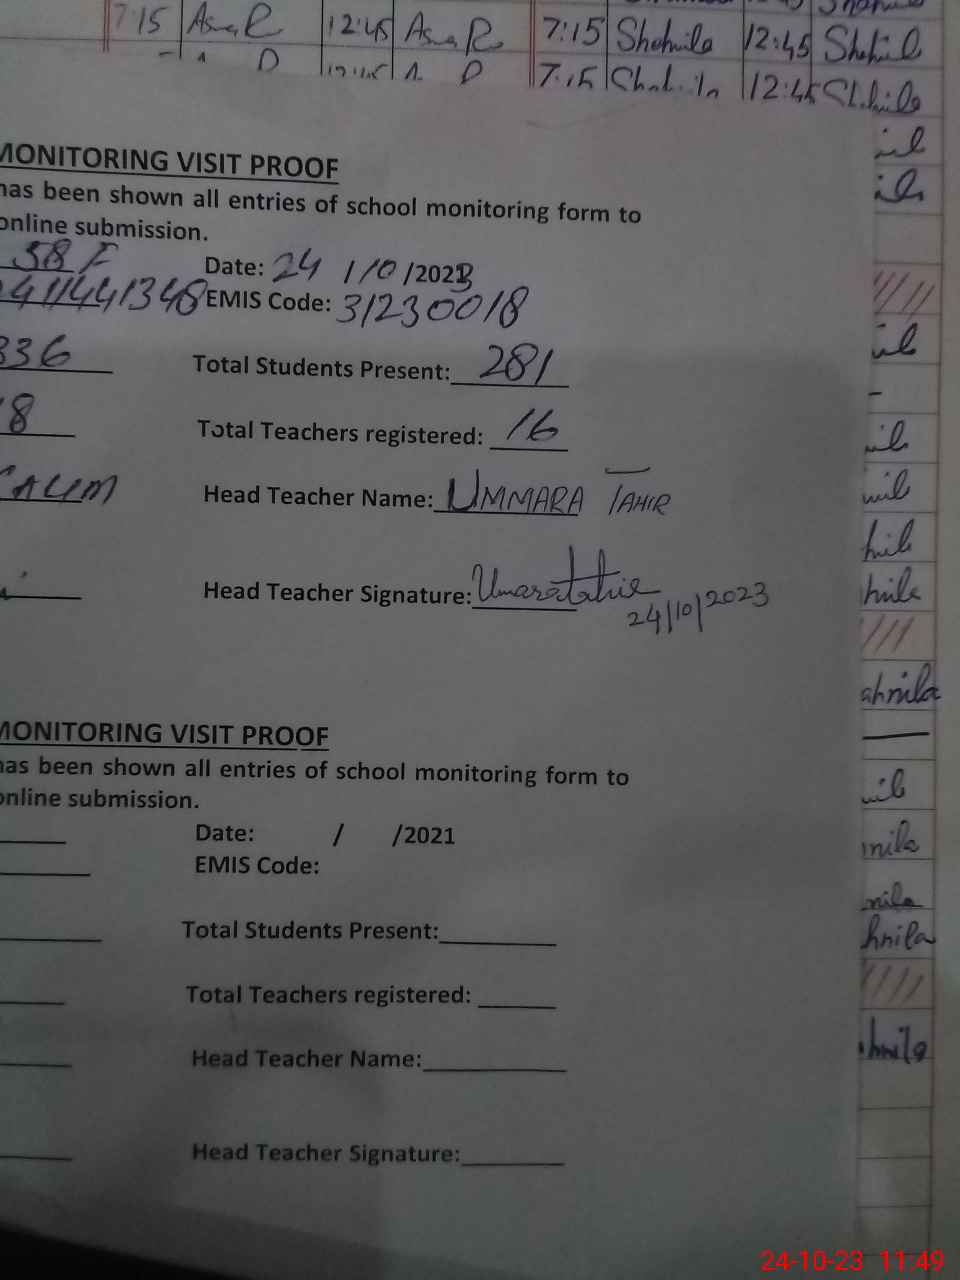 7:15 Asma R 12:45 Asma R 7:15 Shahnila 12:45 Shahnil
7:15 12:45 7:15 12:45 Shahnila
MONITORING VISIT PROOF
has been shown all entries of school monitoring form to
online submission.
58 F Date: 24 /10 /2023
411441348 EMIS Code: 31230018
336 Total Students Present: 281
18 Total Teachers registered: 16
Head Teacher Name: UMMARA TAHIR
Head Teacher Signature: Umaratahir
24/10/2023
ahnila
MONITORING VISIT PROOF
has been shown all entries of school monitoring form to
online submission.
Date: / /2021
EMIS Code:
Total Students Present:
nila
Total Teachers registered:
hnila
Head Teacher Name:
Head Teacher Signature:
24-10-23 11:49